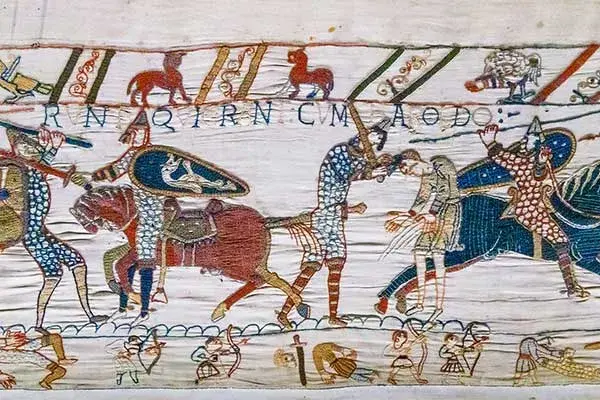 RN QIRN CM AODO :-